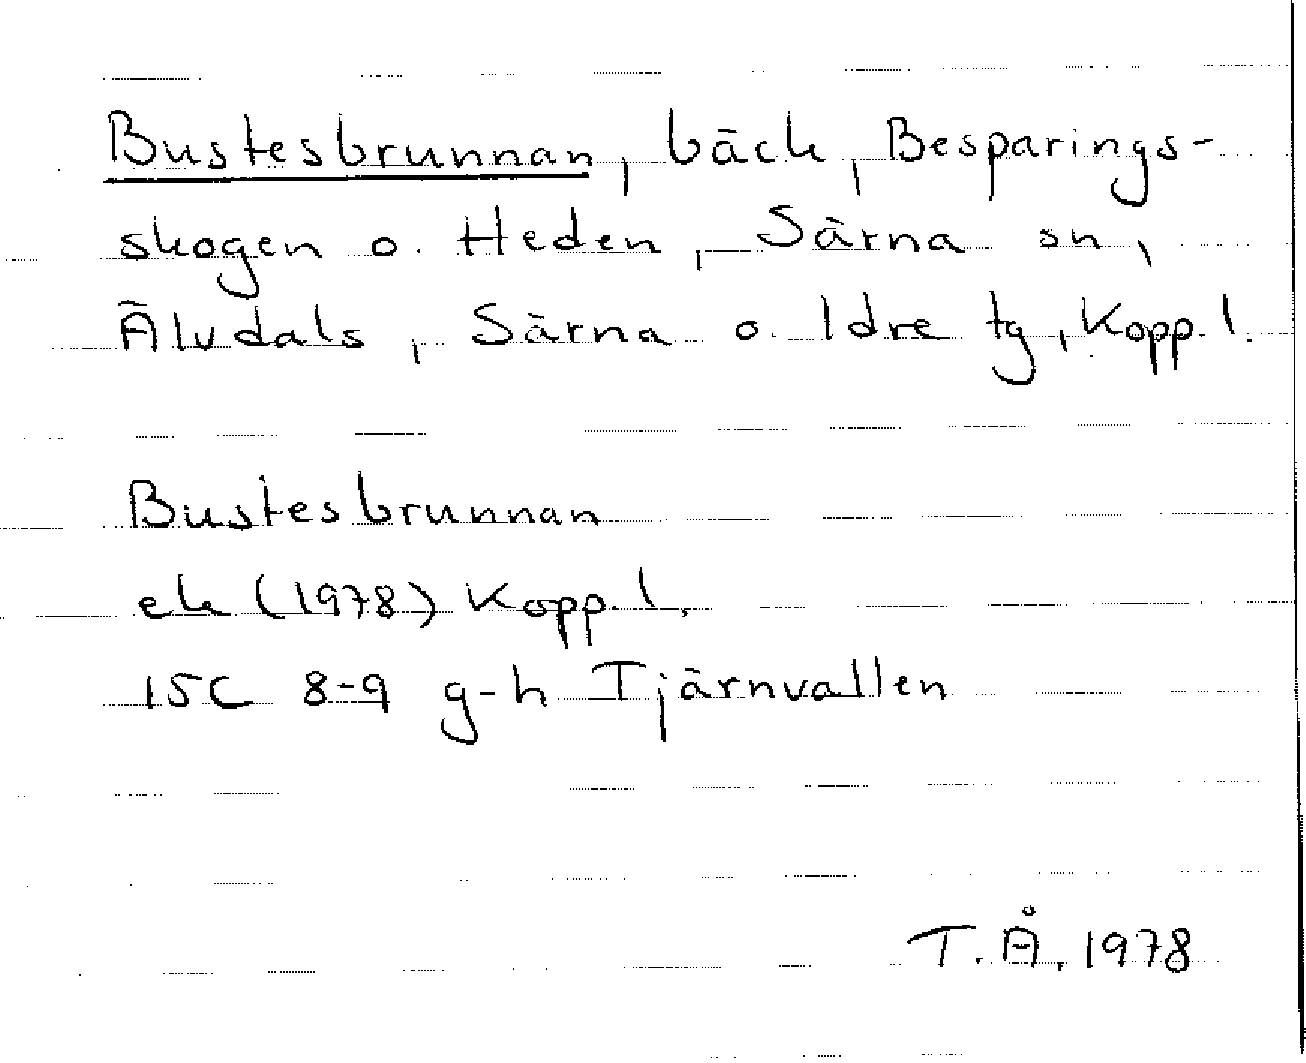 Bustesbrunnan, bäck, Besparings-
skogen o. Heden, Särna sn,
Älvdals, Särna o. Idre tg, Kopp. l.
Bustesbrunnan
ek (1978) Kopp. l.
15C 8-9 g-h Tjärnvallen
T. Å. 1978